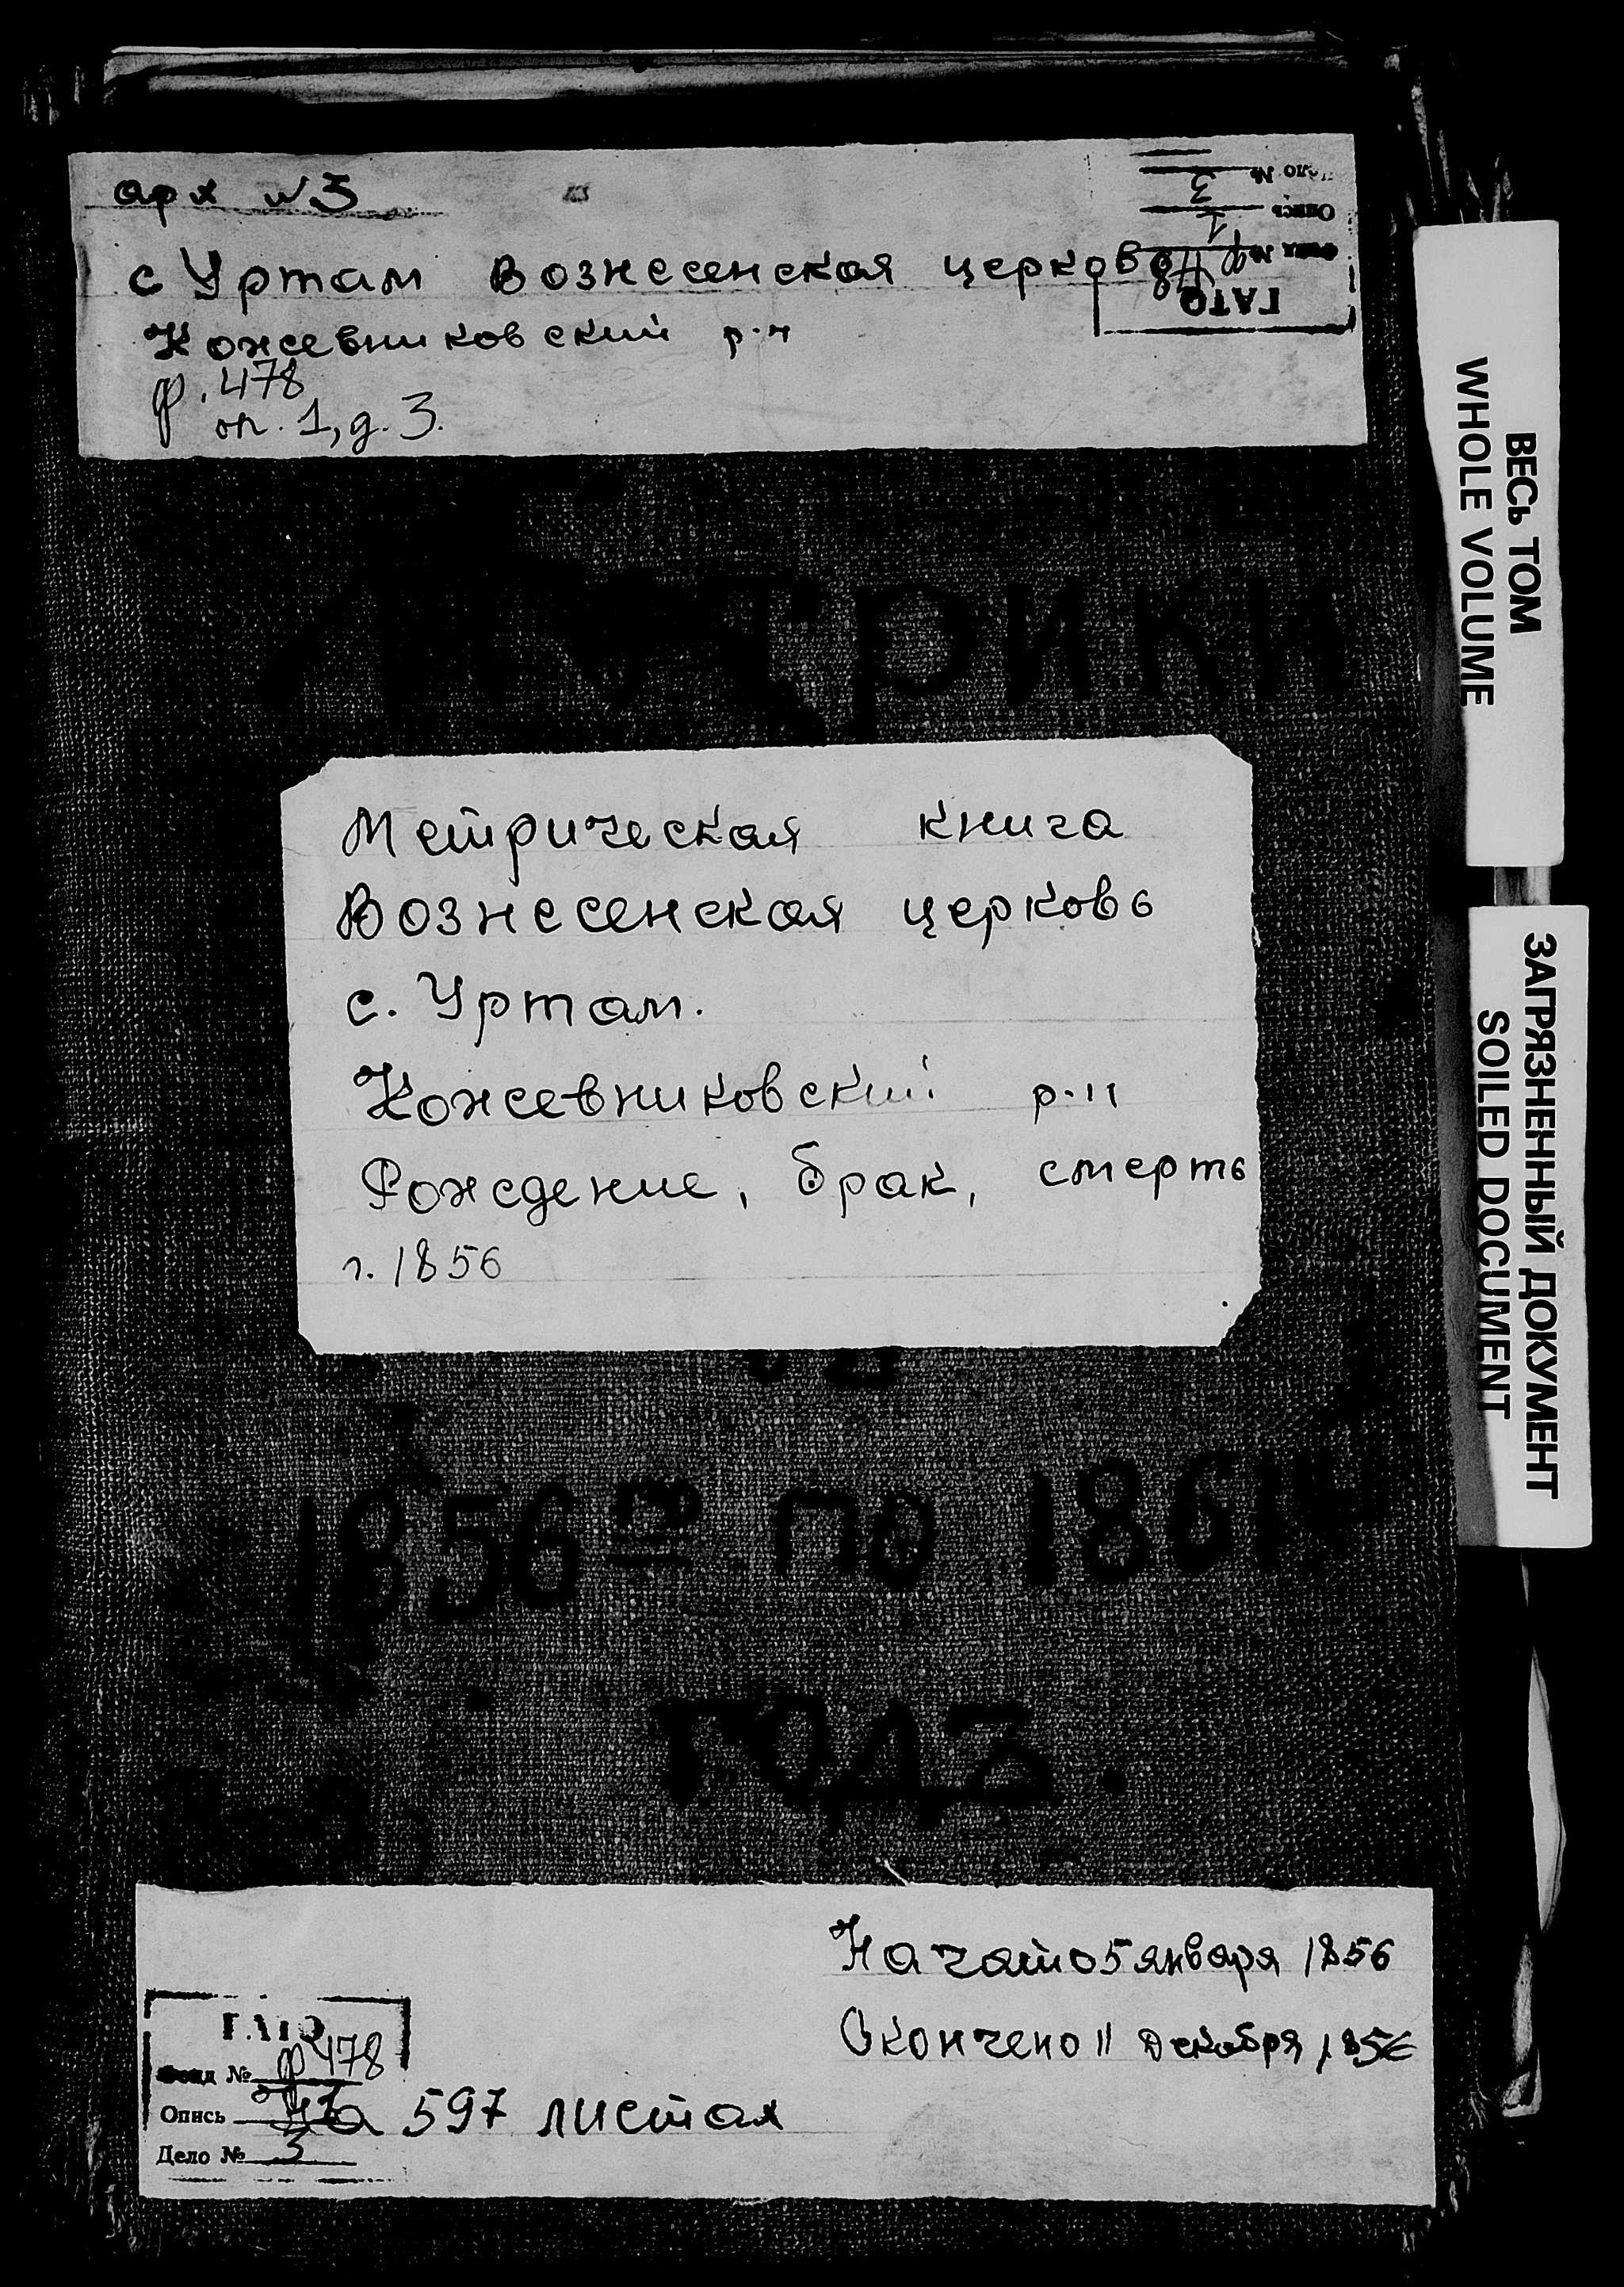 арх № 3
с Уртам Вознесенская церковь
Кожевниковский р-н
ф. 478
оп. 1, д. 3.
ГАТО
Фонд № ф 478
Опись 1
Дело № 3
Метрики
Метрическая книга
Вознесенская церковь
с. Уртам.
Кожевниковский р-н
Рождение, брак, смерть
г. 1856
1856 по 1861
года.
Начато 5 января 1856
Окончено 11 декабря 1856
ГАТО
Фонд № ф 478
Опись
На 597 листах
Дело № 3
ВЕСЬ ТОМ
WHOLE VOLUME
ЗАГРЯЗНЕННЫЙ ДОКУМЕНТ
SOILED DOCUMENT